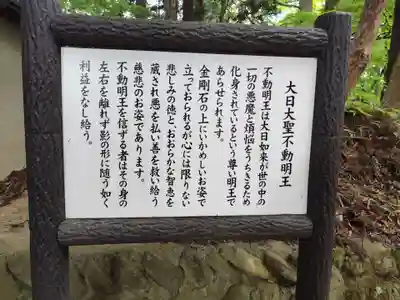 大日大聖不動明王
不動明王は大日如来が世の中の
一切の悪魔と煩悩をうちきるため
化身されているという尊い明王で
あらせられます。
金剛石の上にいかめしいお姿で
立っておられるが心には限りない
悲しみの徳と、おおらかな智恵を
蔵され悪を払い善を救い給う
慈悲のお姿であります。
不動明王を信ずる者はその身の
左右を離れず影の形に随う如く
利益をなし給う。